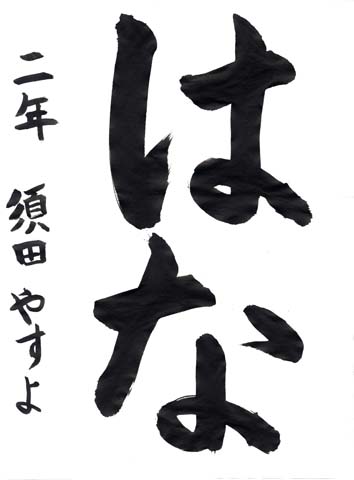 はな
二年 須田 やすよ